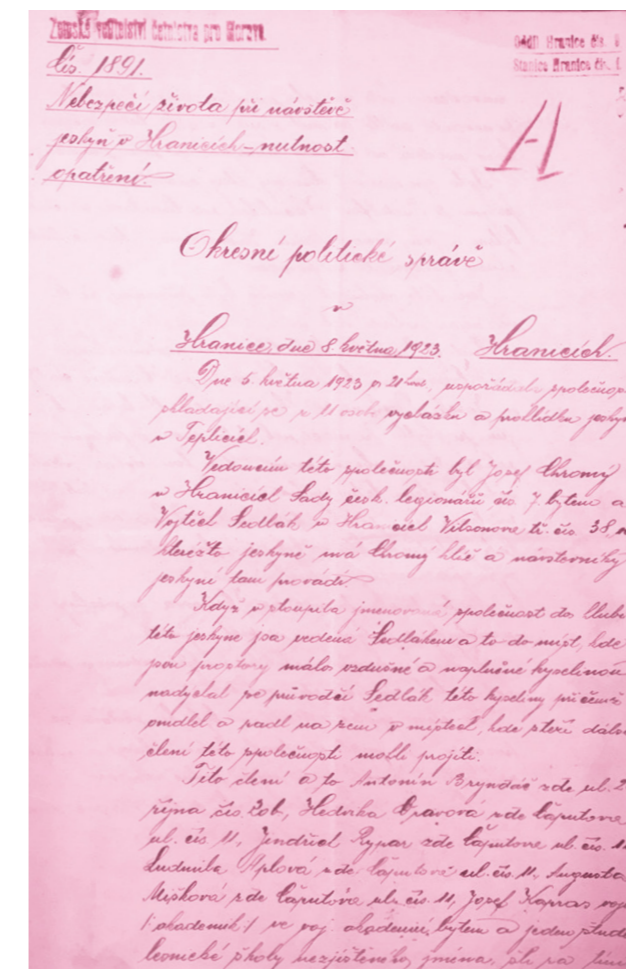 Zemské velitelství četnictva pro Moravu.
Oddíl Hranice čís.
Stanice Hranice čís. 1.
Čís. 1891.
Nebezpečí života při návštěvě
jeskyň v Hranicích – nutnost
opatření.
A
Okresní politické správě
v
Hranice, dne 8. května 1923. Hranicích.
Dne 5. května 1923 o 21 hod., uspořádala společnost
skládající se z 11 osob vycházku a prohlídku jeskyň
v Teplicích.
Vedoucím této společnosti byl Josef Chromý
v Hranicích Sady česk. legionářů čís. 7. bytem a
Vojtěch Sedlák v Hranicích Vilsonova tř. čís. 38,
kterežto jeskyně má Chromý klíč a návštevníky
jeskyní tam provádí.
Když vstoupila jmenovaná společnost do hlubin
této jeskyne jsa vedená Sedlákem a to do míst, kde
jsou prostory málo vzdušné a naplněné kyselinou
nadýchal se průvodčí Sedlák této kyseliny při čemž
omdlel a padl na zem v místech, kde steří další
členi této společnosti mohli projíti.
Tito členi a to Antonín Bryndáč zde ul. 2
října čís. 206, Hedvika Oravová zde Čaputova
ul. čís 11, Jindřich Rypar zde Čaputova ul. čís. 11
Ludmila zde Čaputová ul. čís. 11, Augusta
Mišková zde Čaputova ul. čís. 11, Josef Kapras voj.
/:akademik:/ ve voj. akademii bytem a jeden stude
školy nezjištěného jména, šli za tím